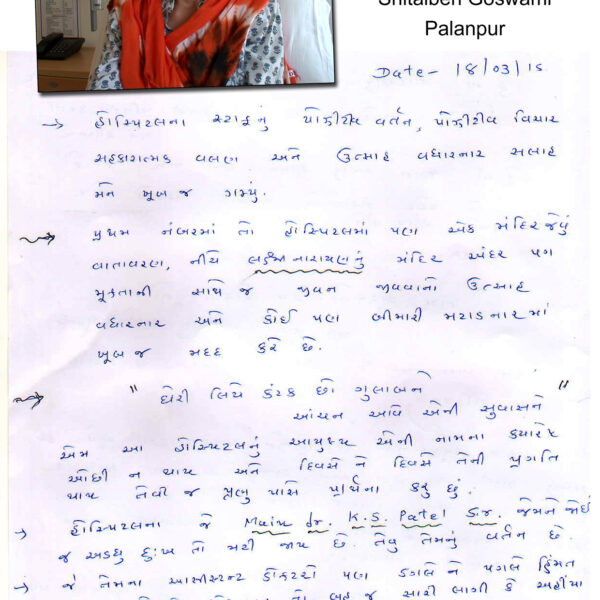 Shitalben Goswami
Palanpur
Date - 18/03/15
→ હોસ્પિટલના સ્ટાફનું પોઝીટીવ વર્તન, પોઝીટીવ વિચાર
સહકારાત્મક વલણ અને ઉત્સાહ વધારનાર સલાહ
મને ખૂબ જ ગમ્યું.
પ્રથમ નંબરમાં તો હોસ્પિટલમાં પણ એક મંદિર જેવું
વાતાવરણ, નીચે લક્ષ્મીનારાયણનું મંદિર અંદર પગ
મૂકતાની સાથે જ જીવન જીવવાનો ઉત્સાહ
વધારનાર અને કોઈ પણ બીમારી મટાડનારમાં
ખૂબ જ મદદ કરે છે.
" ઘેરી લિયે કંટક છો ગુલાબને
આંચન આવે એની સુવાસને "
એમ આ હોસ્પિટલનું આયુષ્ય એની નામના ક્યારેક
ઓછી ન થાય અને દિવસે ને દિવસે તેની પ્રગતિ
થાય તેવી જ પ્રભુ પાસે પ્રાર્થના કરુ છું.
→ હોસ્પિટલના જે Main dr. K.S. Patel Sir જેમને જોઈ
જ અડધુ દુ:ખ તો મટી જાય છે. તેવુ તેમનું વર્તન છે.
→ જે તેમના આસીસ્ટન્ટ ડોક્ટરો પણ ડગલે ને પગલે હિંમત
જ સારી લાગી કે અહીંયા